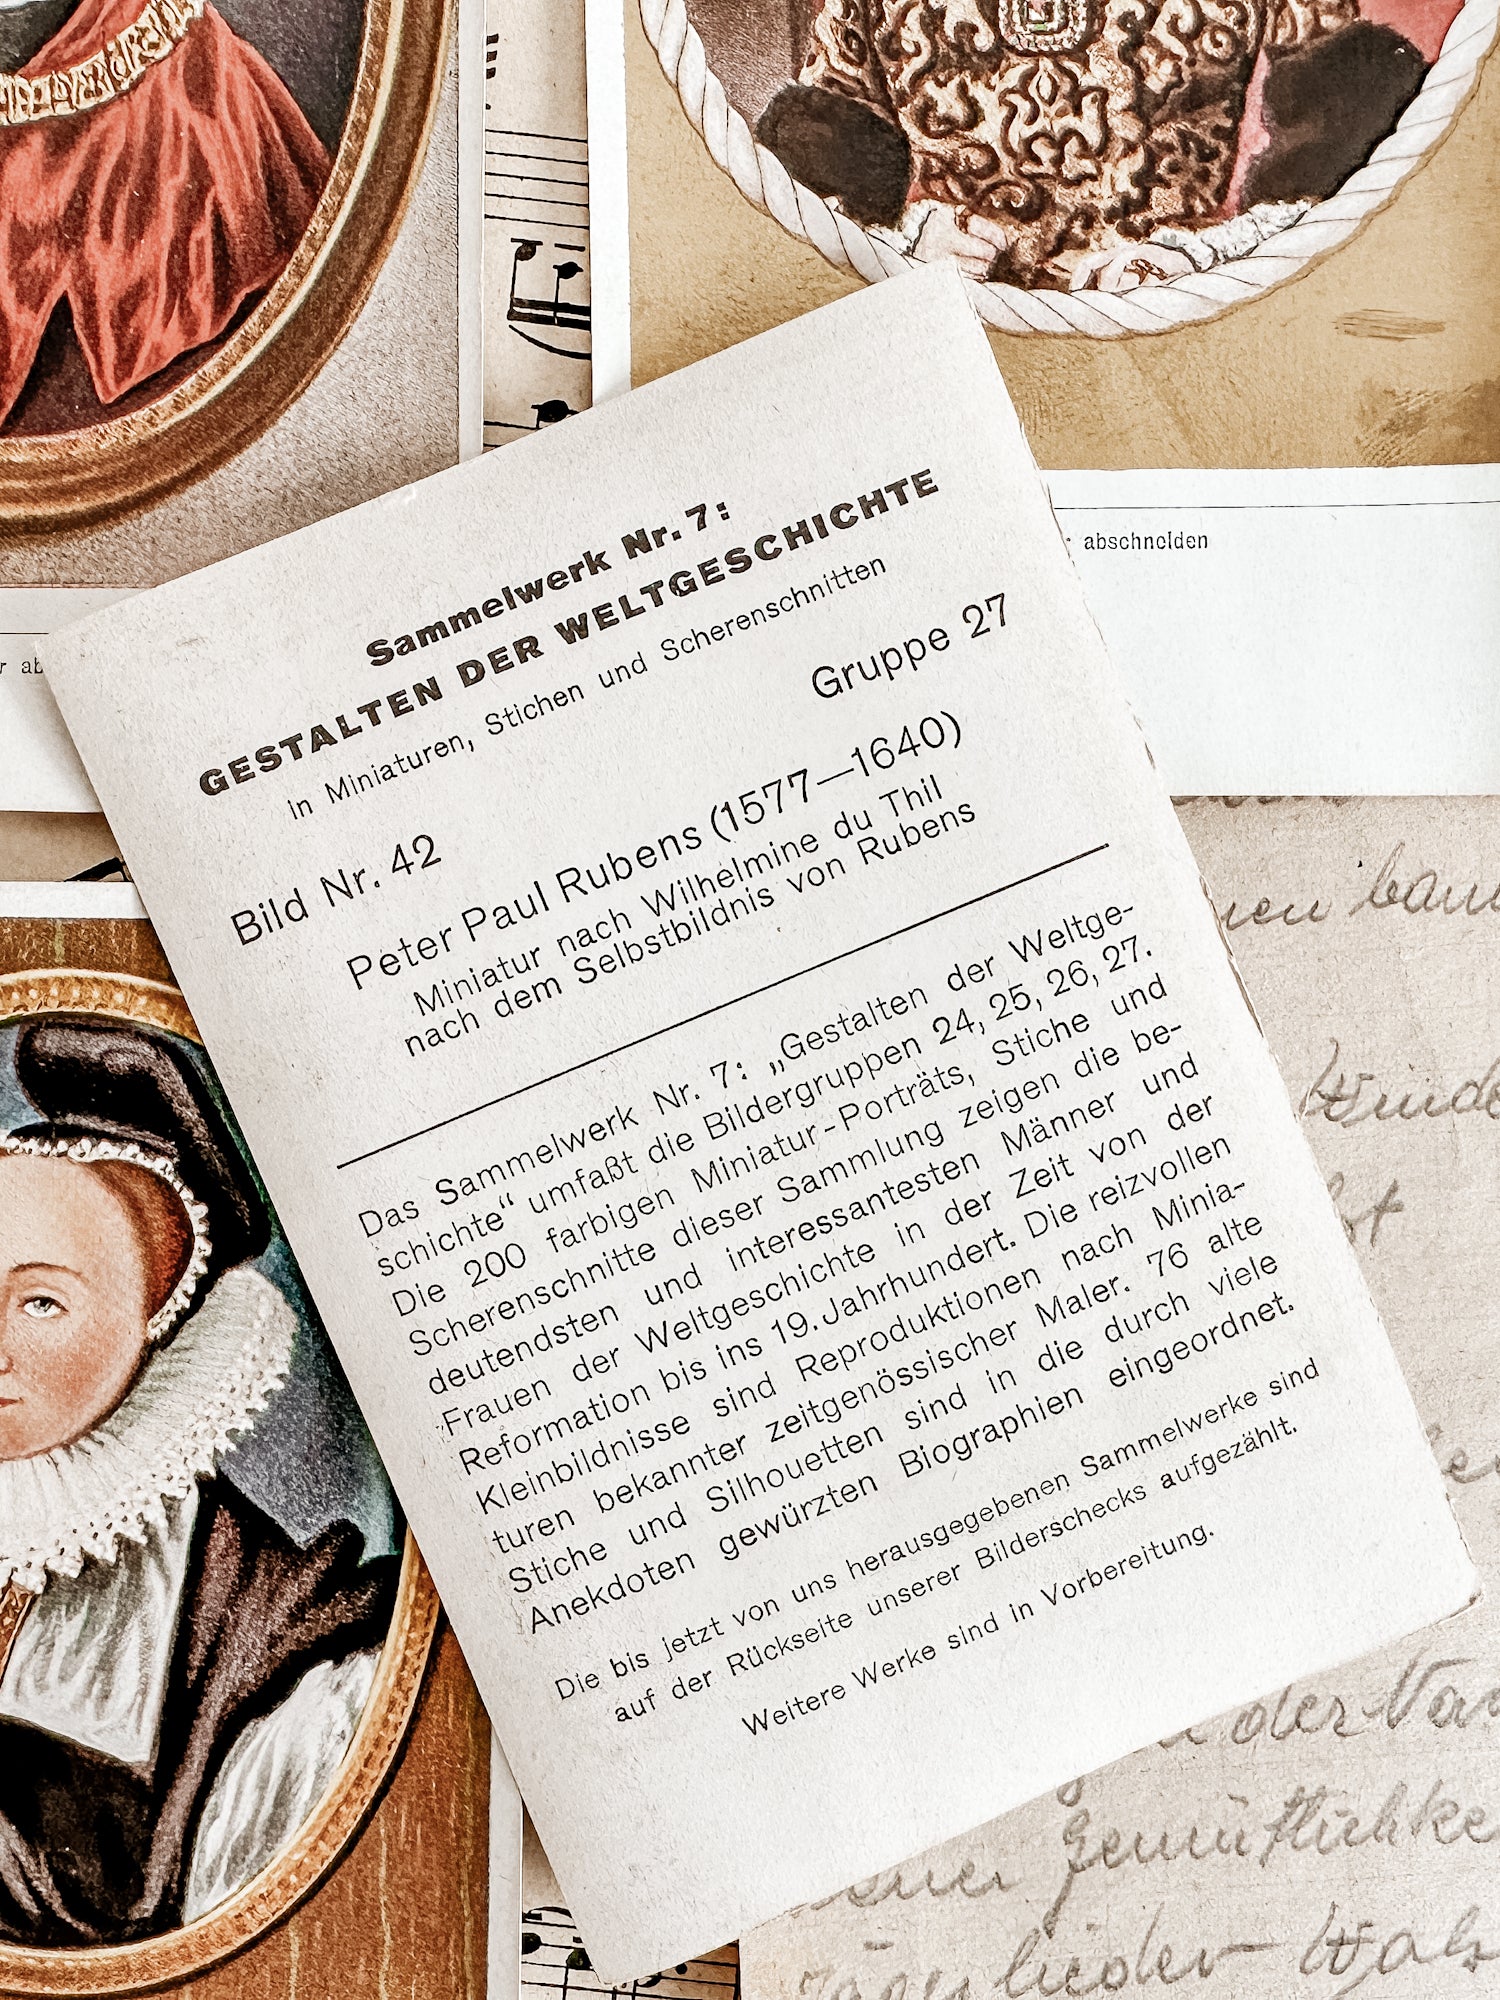 : abschneiden
r ab
Sammelwerk Nr. 7:
GESTALTEN DER WELTGESCHICHTE
in Miniaturen, Stichen und Scherenschnitten
Gruppe 27
Bild Nr. 42
Peter Paul Rubens (1577—1640)
Miniatur nach Wilhelmine du Thil
nach dem Selbstbildnis von Rubens
Das Sammelwerk Nr. 7: „Gestalten der Weltge-
schichte“ umfaßt die Bildergruppen 24, 25, 26, 27.
Die 200 farbigen Miniatur-Porträts, Stiche und
Scherenschnitte dieser Sammlung zeigen die be-
deutendsten und interessantesten Männer und
Frauen der Weltgeschichte in der Zeit von der
Reformation bis ins 19. Jahrhundert. Die reizvollen
Kleinbildnisse sind Reproduktionen nach Minia-
turen bekannter zeitgenössischer Maler. 76 alte
Stiche und Silhouetten sind in die durch viele
Anekdoten gewürzten Biographien eingeordnet.
Die bis jetzt von uns herausgegebenen Sammelwerke sind
auf der Rückseite unserer Bilderschecks aufgezählt.
Weitere Werke sind in Vorbereitung.